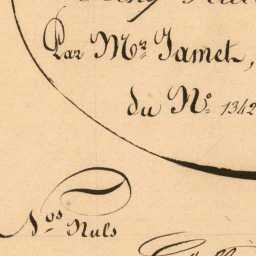 Par Mr. Jamet,
du No. 1342
Nos Nuls